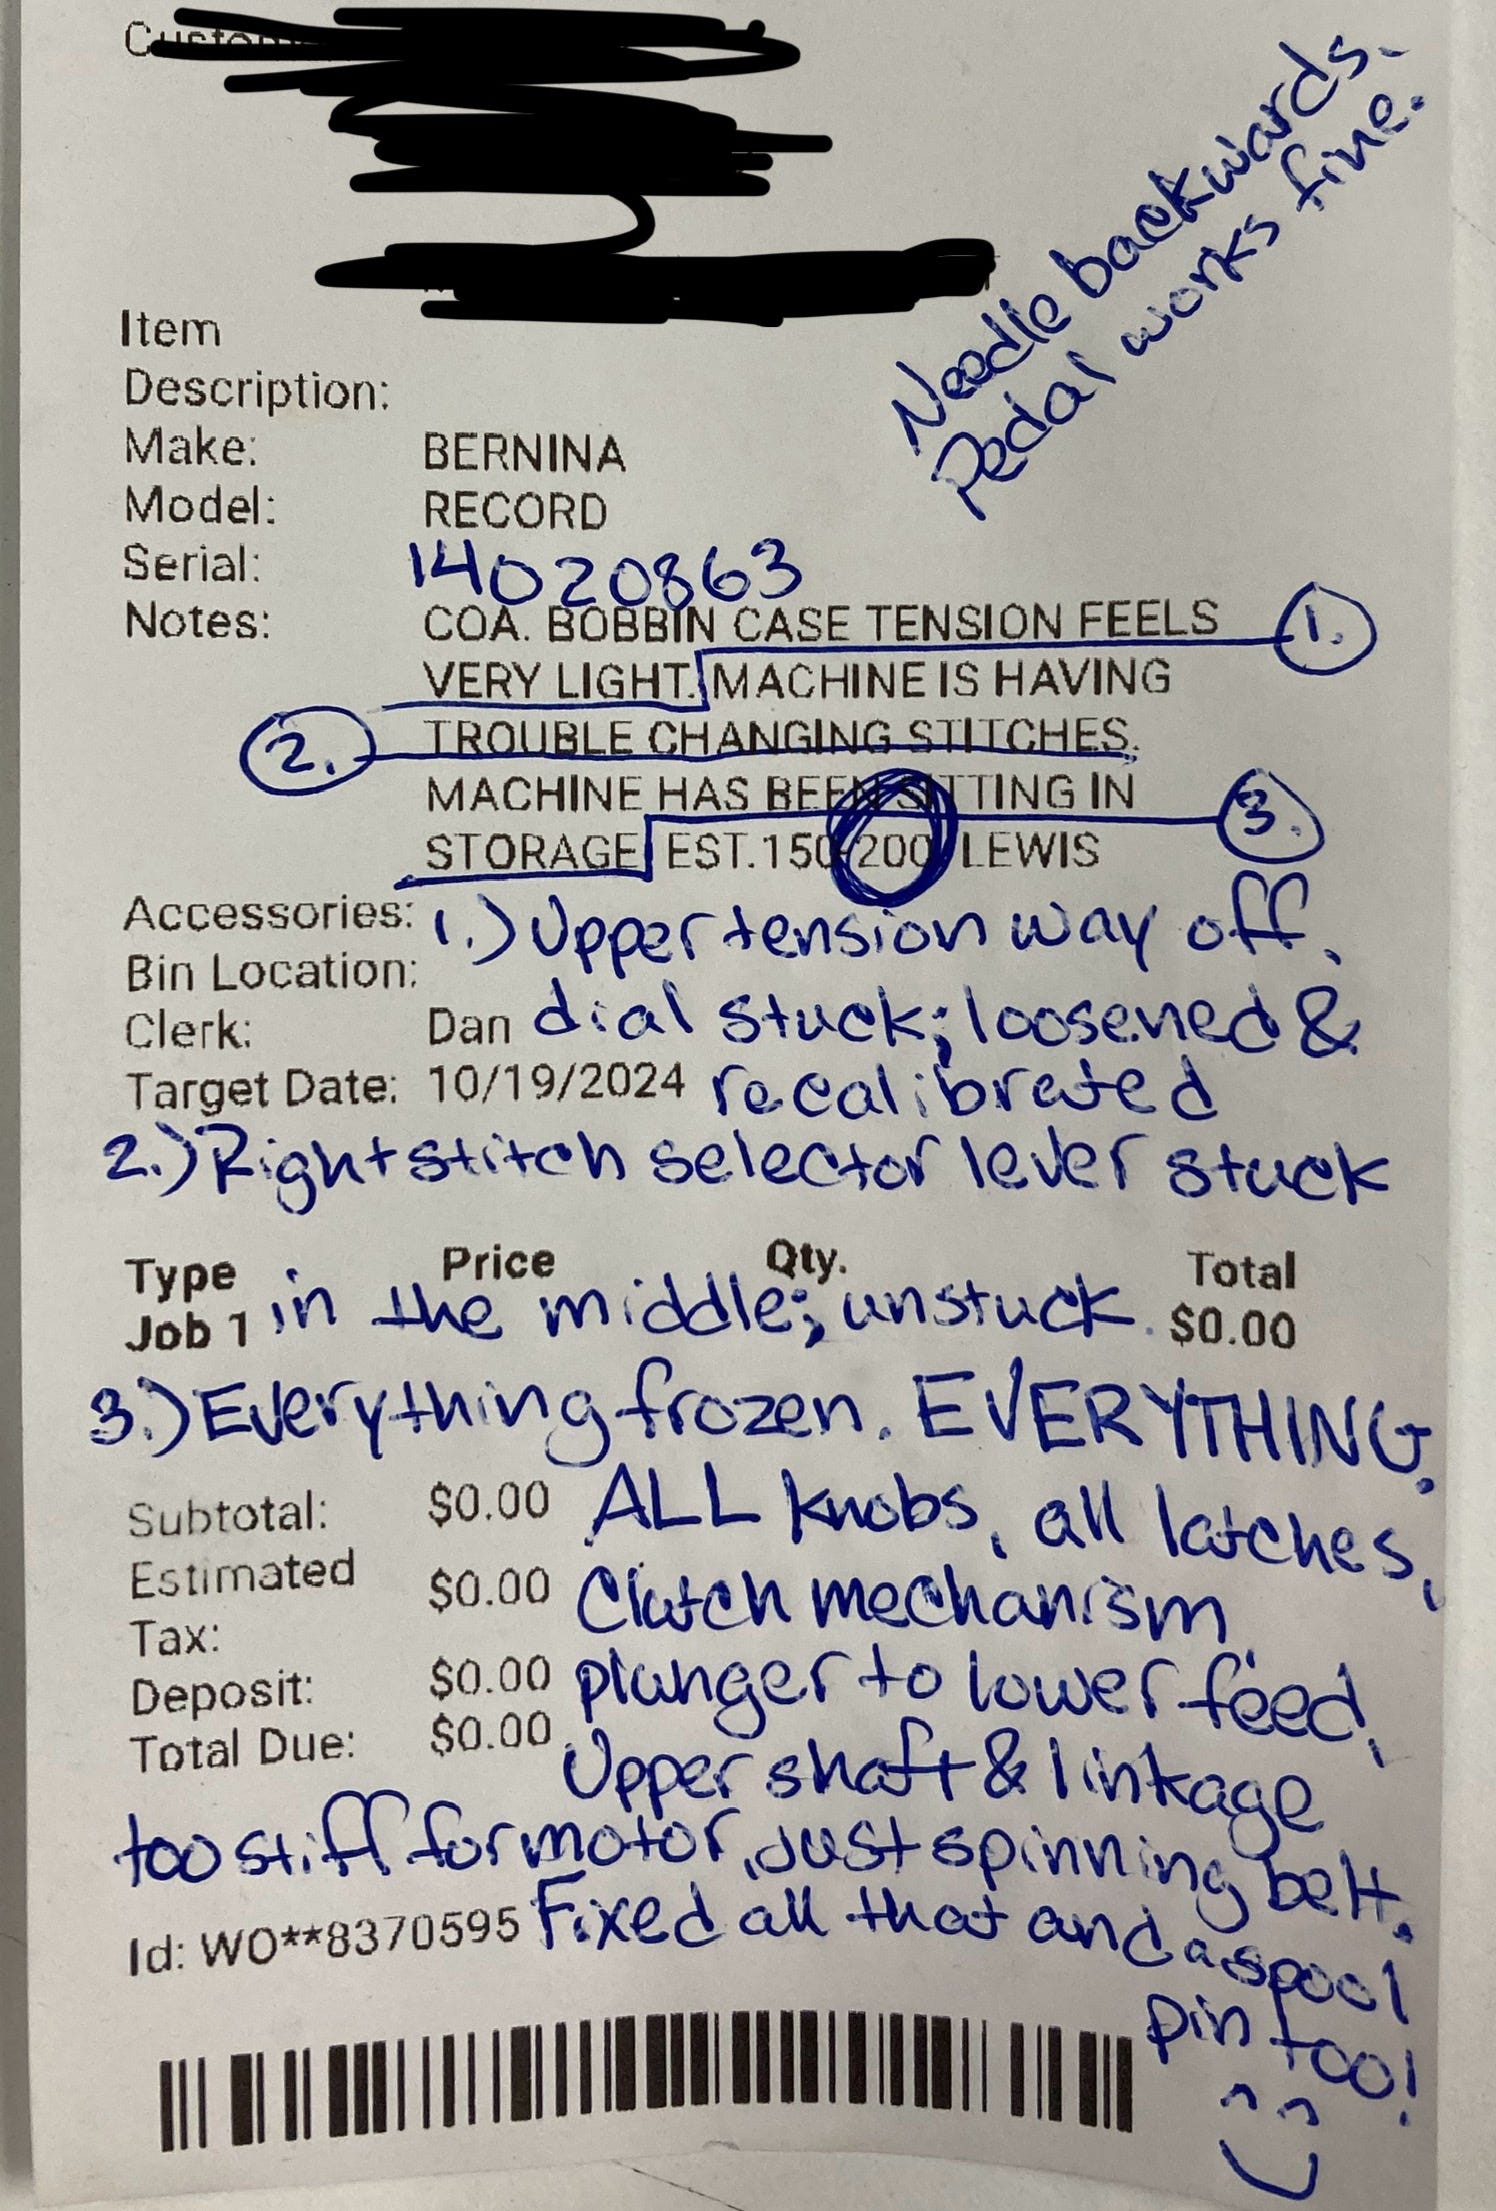 Needle backwards.
Pedal works fine.
Item
Description:
Make: BERNINA
Model: RECORD
Serial: 14020863
Notes: COA. BOBBIN CASE TENSION FEELS 1.
VERY LIGHT. MACHINE IS HAVING
2. TROUBLE CHANGING STITCHES.
MACHINE HAS BEEN SITTING IN 3.
STORAGE EST.150-200 LEWIS
Accessories: 1.) Upper tension way off,
Bin Location:
Clerk: Dan dial stuck; loosened &
Target Date: 10/19/2024 recalibrated
2.) Right stitch selector lever stuck
Type Price Qty. Total
in the middle; unstuck.
Job 1 $0.00
3.) Everything frozen. EVERYTHING.
Subtotal: $0.00 ALL knobs, all latches,
Estimated $0.00 Clutch mechanism,
Tax:
Deposit: $0.00 plunger to lower feed,
Total Due: $0.00 Upper shaft & linkage
too stiff for motor, just spinning belt.
Id: WO**8370595 Fixed all that and a spool
pin too!